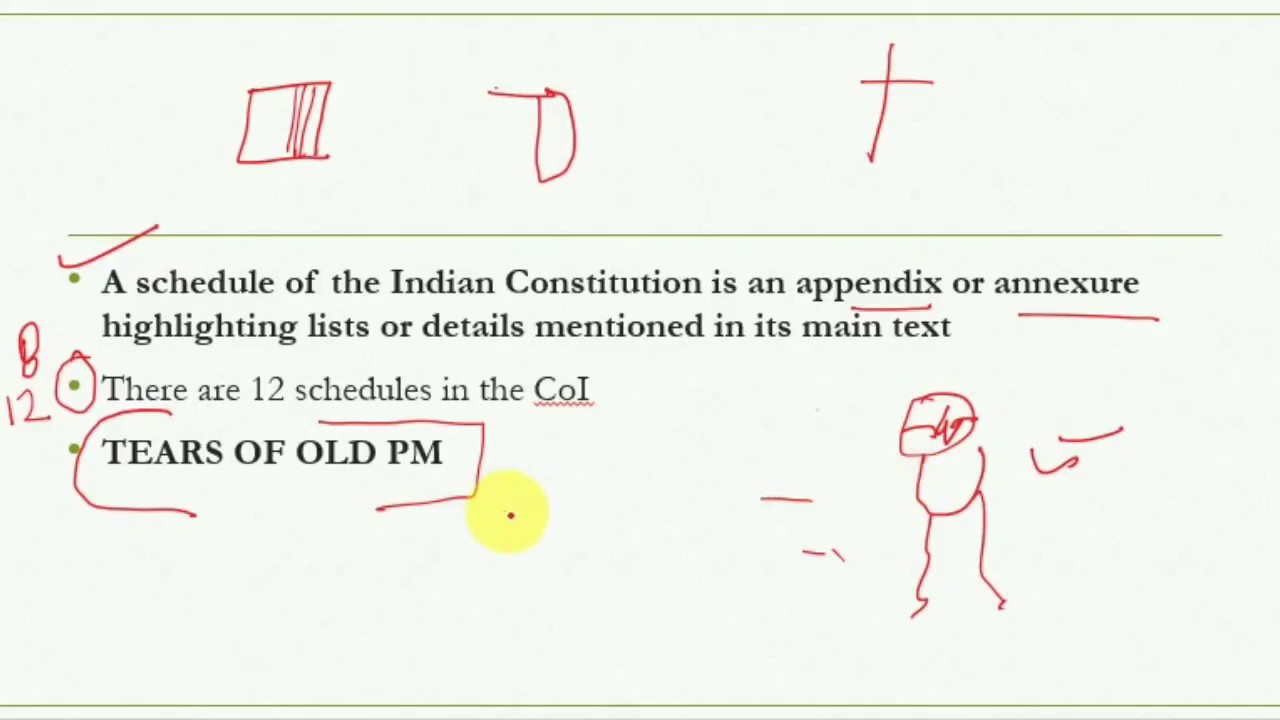 A schedule of the Indian Constitution is an appendix or annexure
highlighting lists or details mentioned in its main text
8
12
There are 12 schedules in the CoI
TEARS OF OLD PM